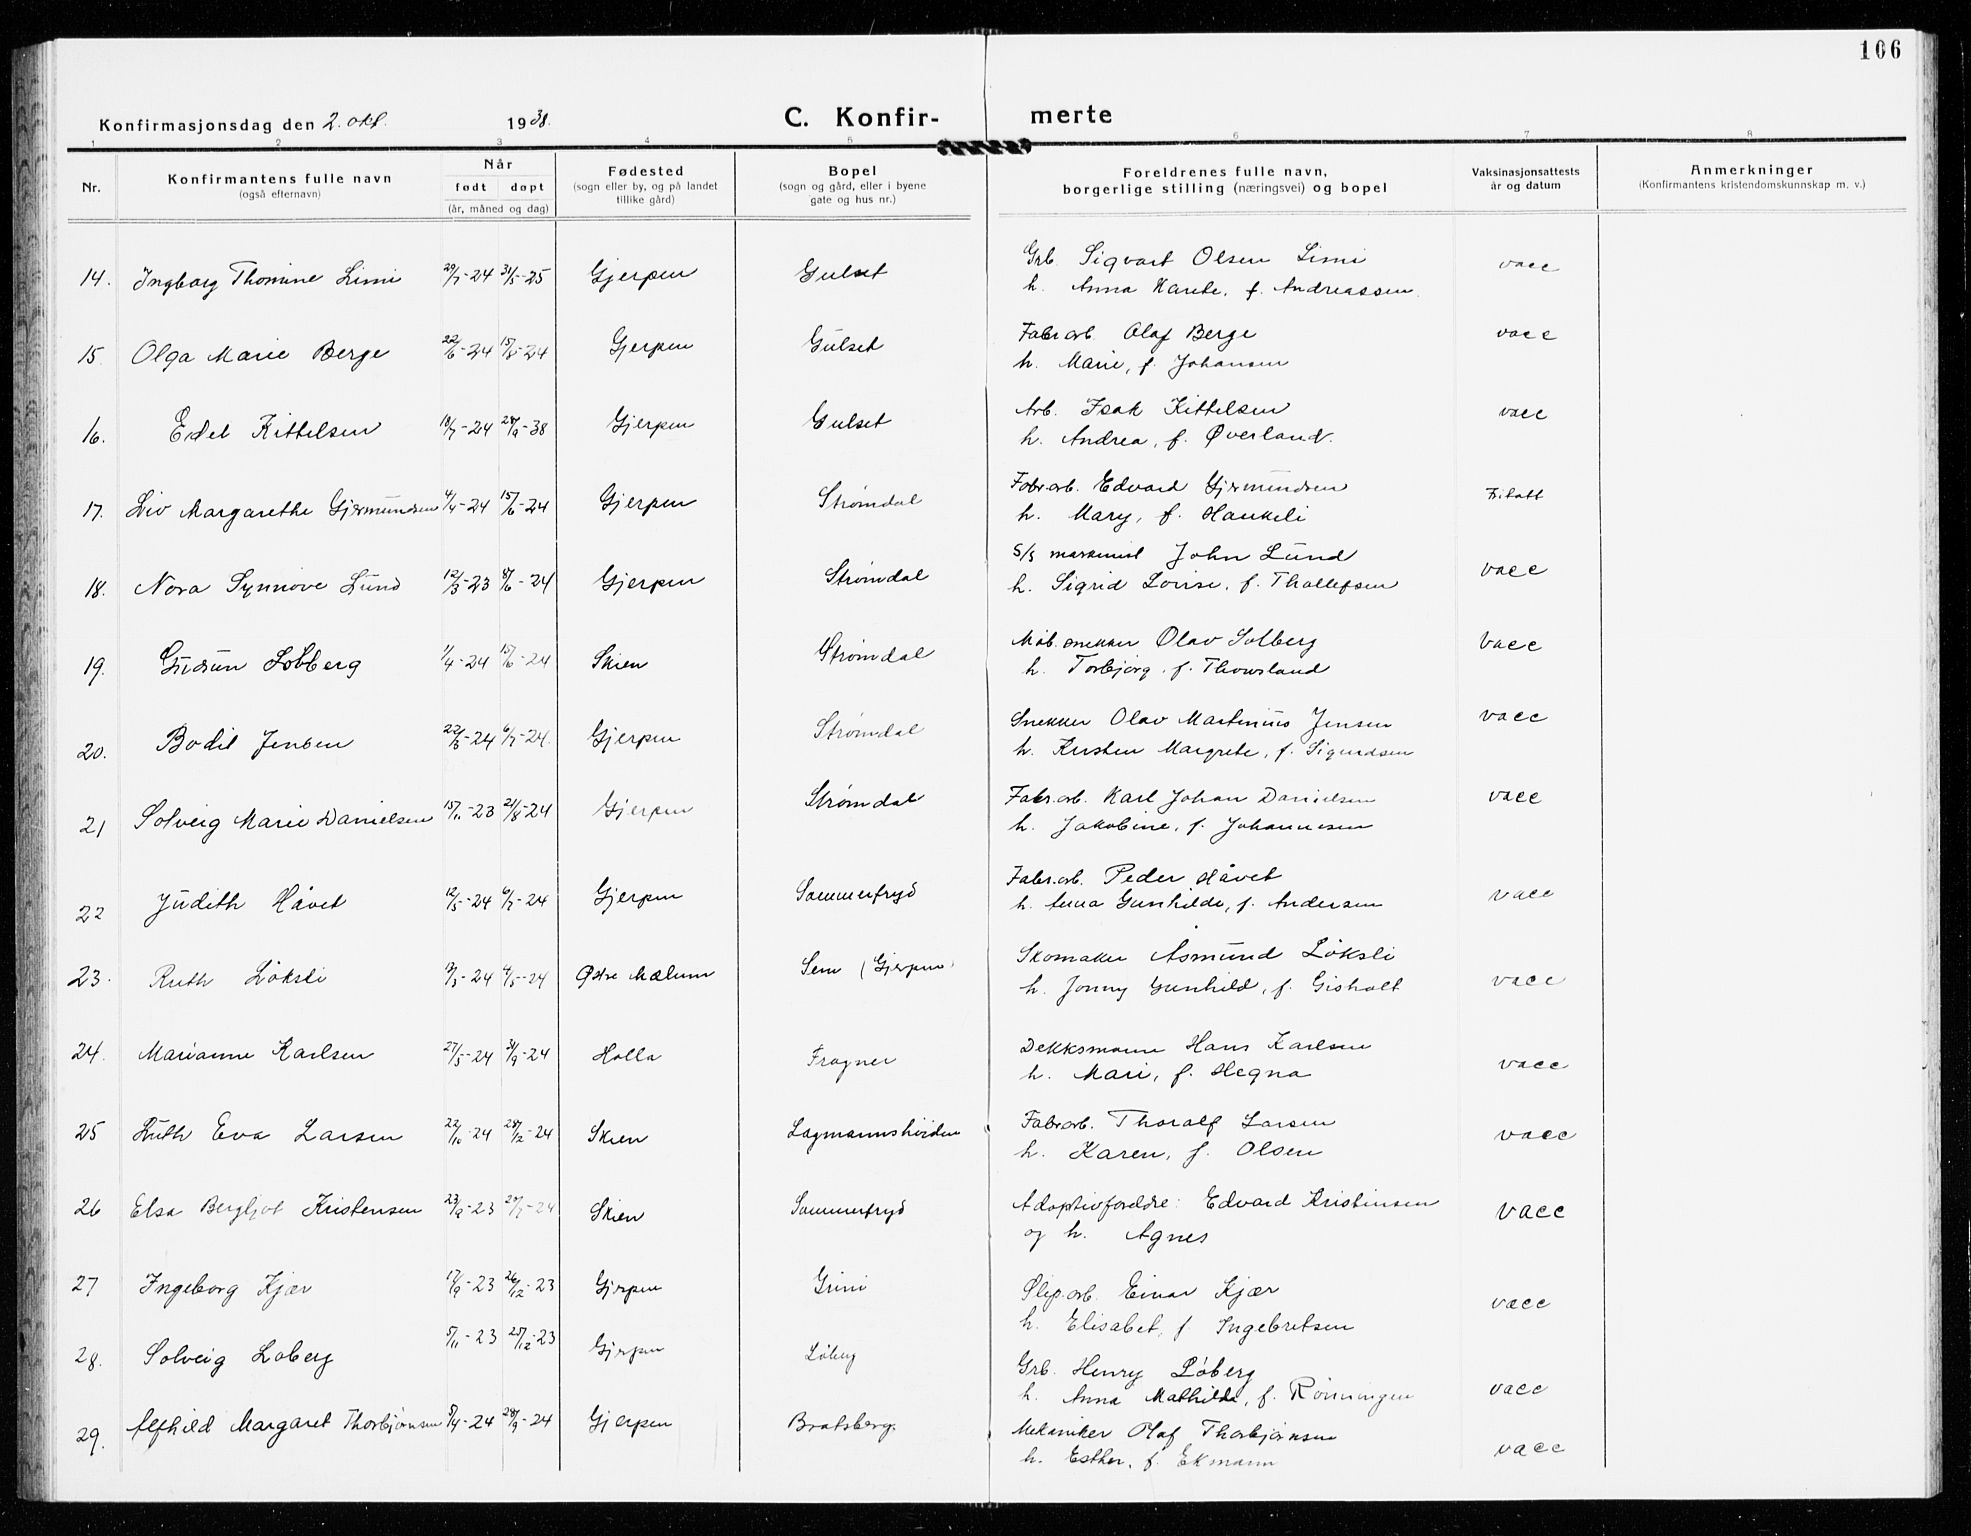 106
Konfirmasjonsdag den 2. okt. 1938. C. Konfir- merte
1 2 3 4 5 6 7 8
Nr. Konfirmantens fulle navn (også efternavn) Når født døpt (år, måned og dag) Fødested (sogn eller by, og på landet tillike gård) Bopel (sogn og gård, eller i byene gate og hus nr.) Foreldrenes fulle navn, borgerlige stilling (næringsvei) og bopel Vaksinasjonsattests år og datum Anmerkninger (Konfirmantens kristendomskunnskap m. v.)
14. Ingborg Thomine Limi 29/7-24 31/5-25 Gjerpen Gulset Grb. Sigvart Olsen Limi vacc
h. Anna Karete, f. Andreassen.
15. Olga Marie Berge 22/6-24 15/8-24 Gjerpen Gulset Fabr.arb. Olaf Berge vacc
h. Marie, f. Johansen
16. Eidel Kittelsen 18/7-24 28/9-38 Gjerpen Gulset Arb. Isak Kittelsen vacc
h. Andrea, f. Øverland.
17. Liv Margarethe Gjermundsen 4/4-24 15/6-24 Gjerpen Strømdal Fabr.arb. Edvard Gjermundsen Fritatt
h. Mary, f. Haukeli
18. Nora Synnøve Lund 12/3-23 8/6-24 Gjerpen Strømdal S/S maskinist John Lund vacc
h. Sigrid Lovise, f. Thollefsen
19. Gudrun Solberg 1/4-24 15/6-24 Skien Strømdal Møb.snekker Olav Solberg Vacc
h. Torbjørg, f. Thowsland
20. Bodil Jensen 22/3-24 6/7-24. Gjerpen Strømdal Snekker Olav Martinius Jensen vacc
h. Kristen Margrete, f. Sigurdsen
21 Solveig Marie Danielsen 15/11-23 21/8-24 Gjerpen Strømdal Fabr.arb. Karl Johan Danielsen vacc
h. Jakobine, f. Johannesen
22 Judith Håvet 12/5-24 6/7-24 Gjerpen Sommerfryd Fabr.arb. Peder Håvet vacc
h. Anna Gunhilde, f. Andersen
23. Ruth Løksli /3-24 4/5-24 Østre Mælum Sem (Gjerpen) Skomaker Asmund Løksli vacc
h. Jonny Gunhild, f. Gisholt
24. Marianne Karlsen 27/5-24 31/9-24 Holla Frogner Dekksmann Hans Karlsen vacc
h. Mari, f. Hegna
25 Ruth Eva Larsen 22/10-24 28/12-24 Skien Lagmannshviden Fabr.arb. Thoralf Larsen vacc
h. Karen, f. Olsen
26 Elsa Bergljot Kristensen 23/9-23 20/7-24 Skien Sommerfryd Adoptivforeldre: Edvard Kristensen vacc
og h. Agnes
27 Ingeborg Kjær 17/9-23 26/12-23 Gjerpen Grini Slip.arb. Einar Kjær vacc
h. Elisabet, f Ingebretsen
28. Solveig Løberg 5/11-23 25/12-23 Gjerpen Løberg Grb. Henry Løberg vacc
h. Anna Mathilde, f. Rønningen
29. Alfhild Margaret Thorbjørnsen 5/4-24 28/9-24 Gjerpen Bratsberg. Mekaniker Olaf Thorbjørnsen vacc
h. Esther, f. Ekmann